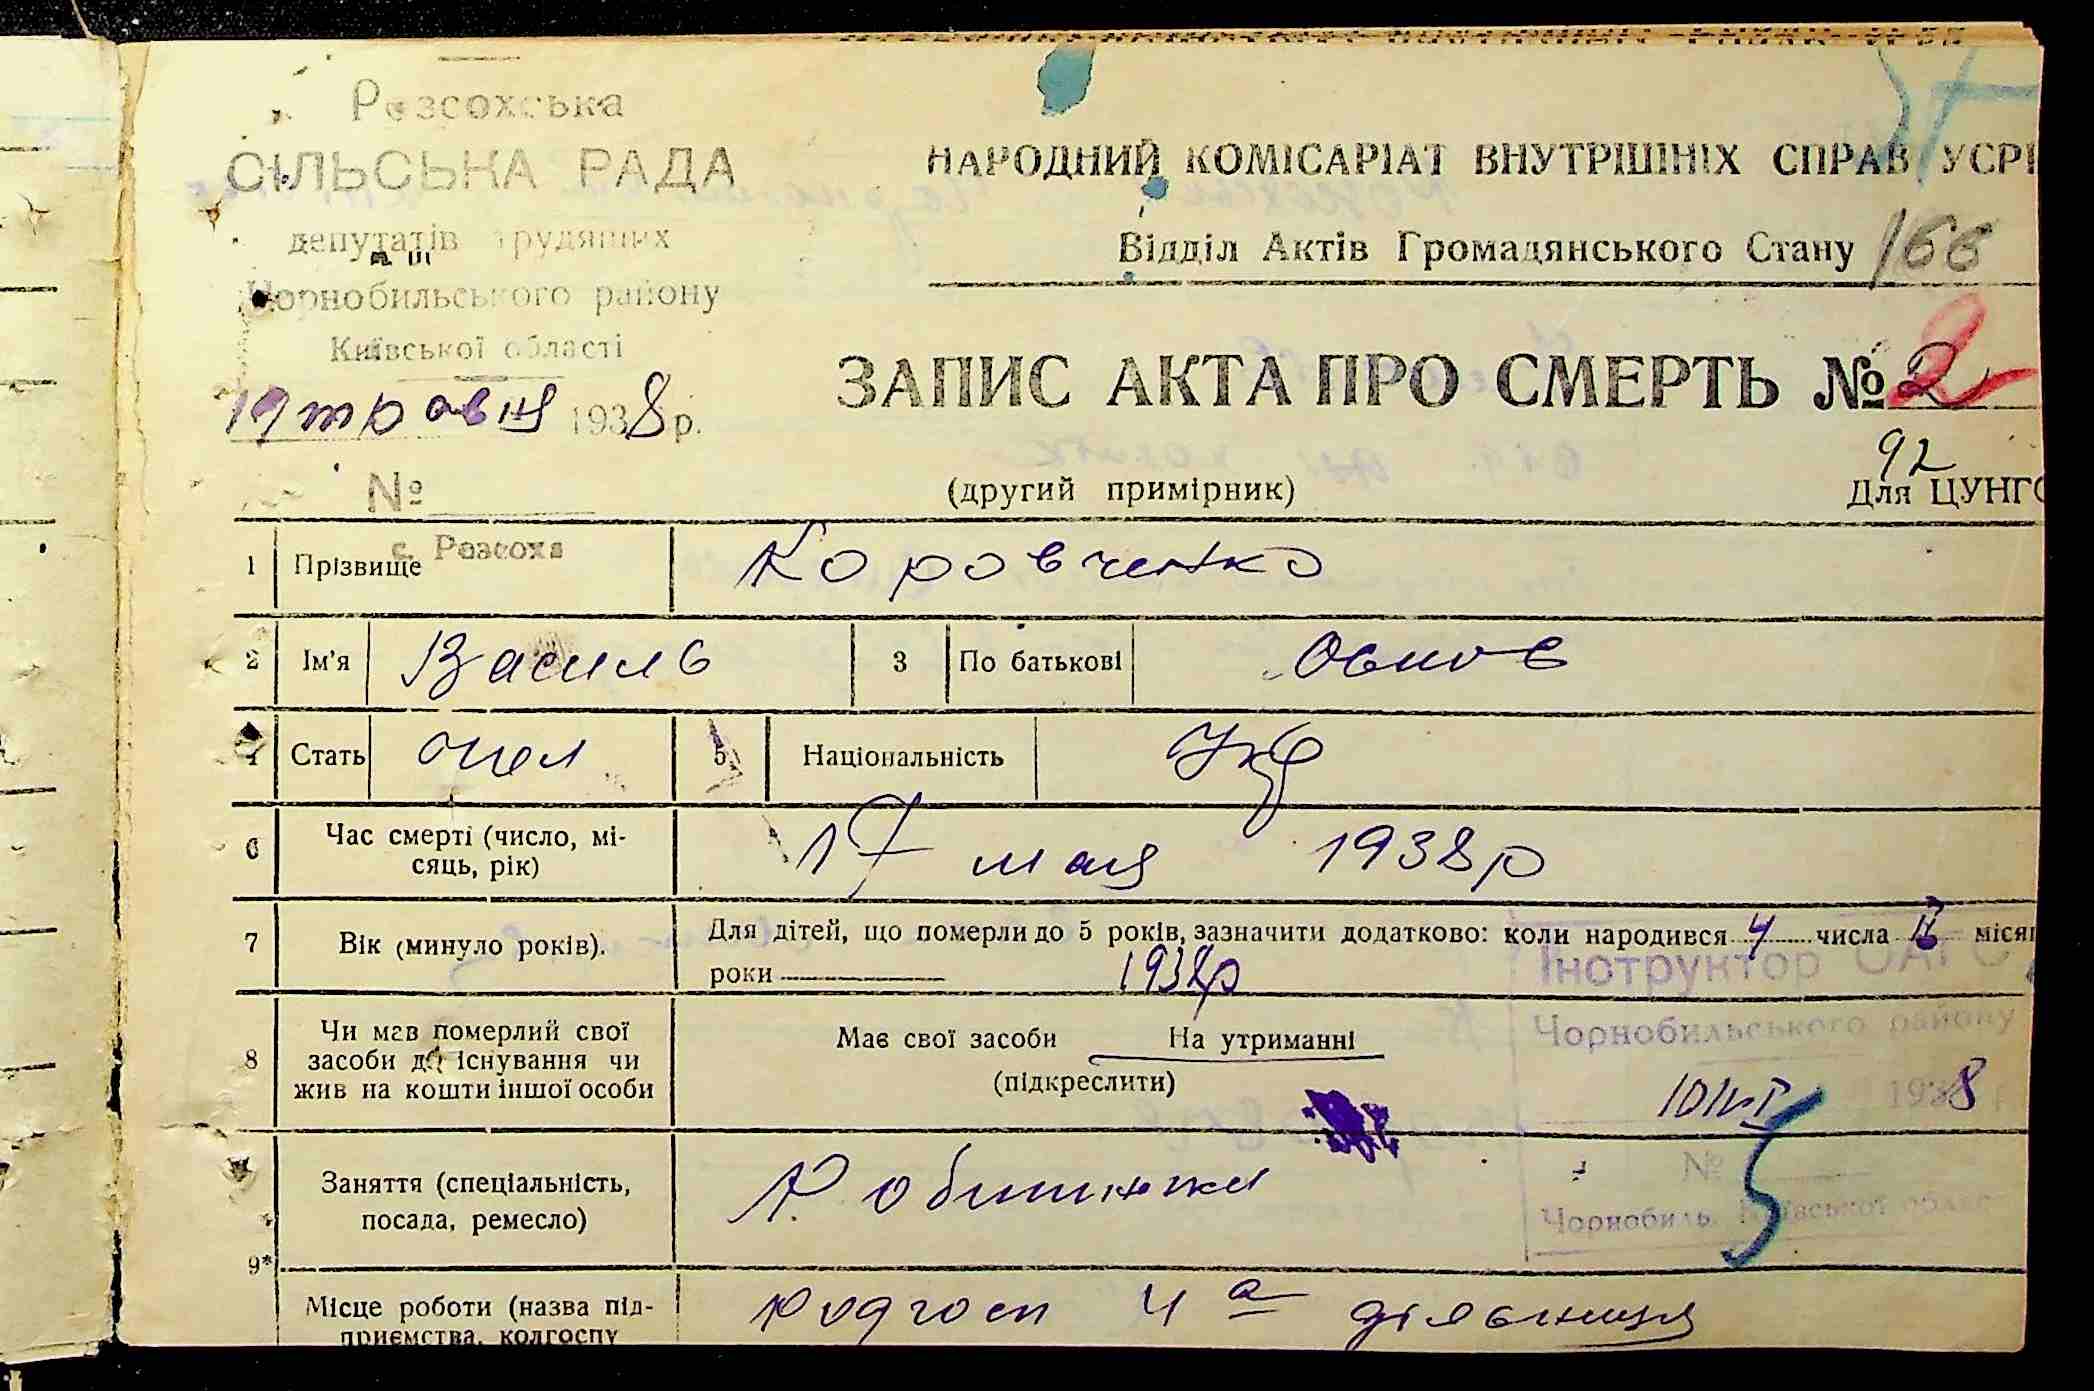 Розсохська
СІЛЬСЬКА РАДА
депутатів трудящих
Чорнобильського району
Київської області
19 травня 1938 р.
№
с. Розсоха
НАРОДНИЙ КОМІСАРІАТ ВНУТРІШНІХ СПРАВ УСРР
Відділ Актів Громадянського Стану 166
ЗАПИС АКТА ПРО СМЕРТЬ № 2
92
(другий примірник) Для ЦУНГО
1 Прізвище Коровченко
2 Ім'я Василь 3 По батькові
4 Стать чол 5 Національність Укр
6 Час смерті (число, мі-
сяць, рік) 17 мая 1938 р
7 Вік (минуло років). Для дітей, що померли до 5 років, зазначити додатково: коли народився 4 числа міся
роки 1938р
8 Чи мав померлий свої
засоби до існування чи
жив на кошти іншої особи
Має свої засоби На утриманні
(підкреслити)
Інструктор ОАГС
Чорнобильського району
1938 р
№
Чорнобиль, Київської облас
9* Заняття (спеціальність,
посада, ремесло)
Місце роботи (назва під-
приємства, колгоспу
Радгосп 4а дільниця